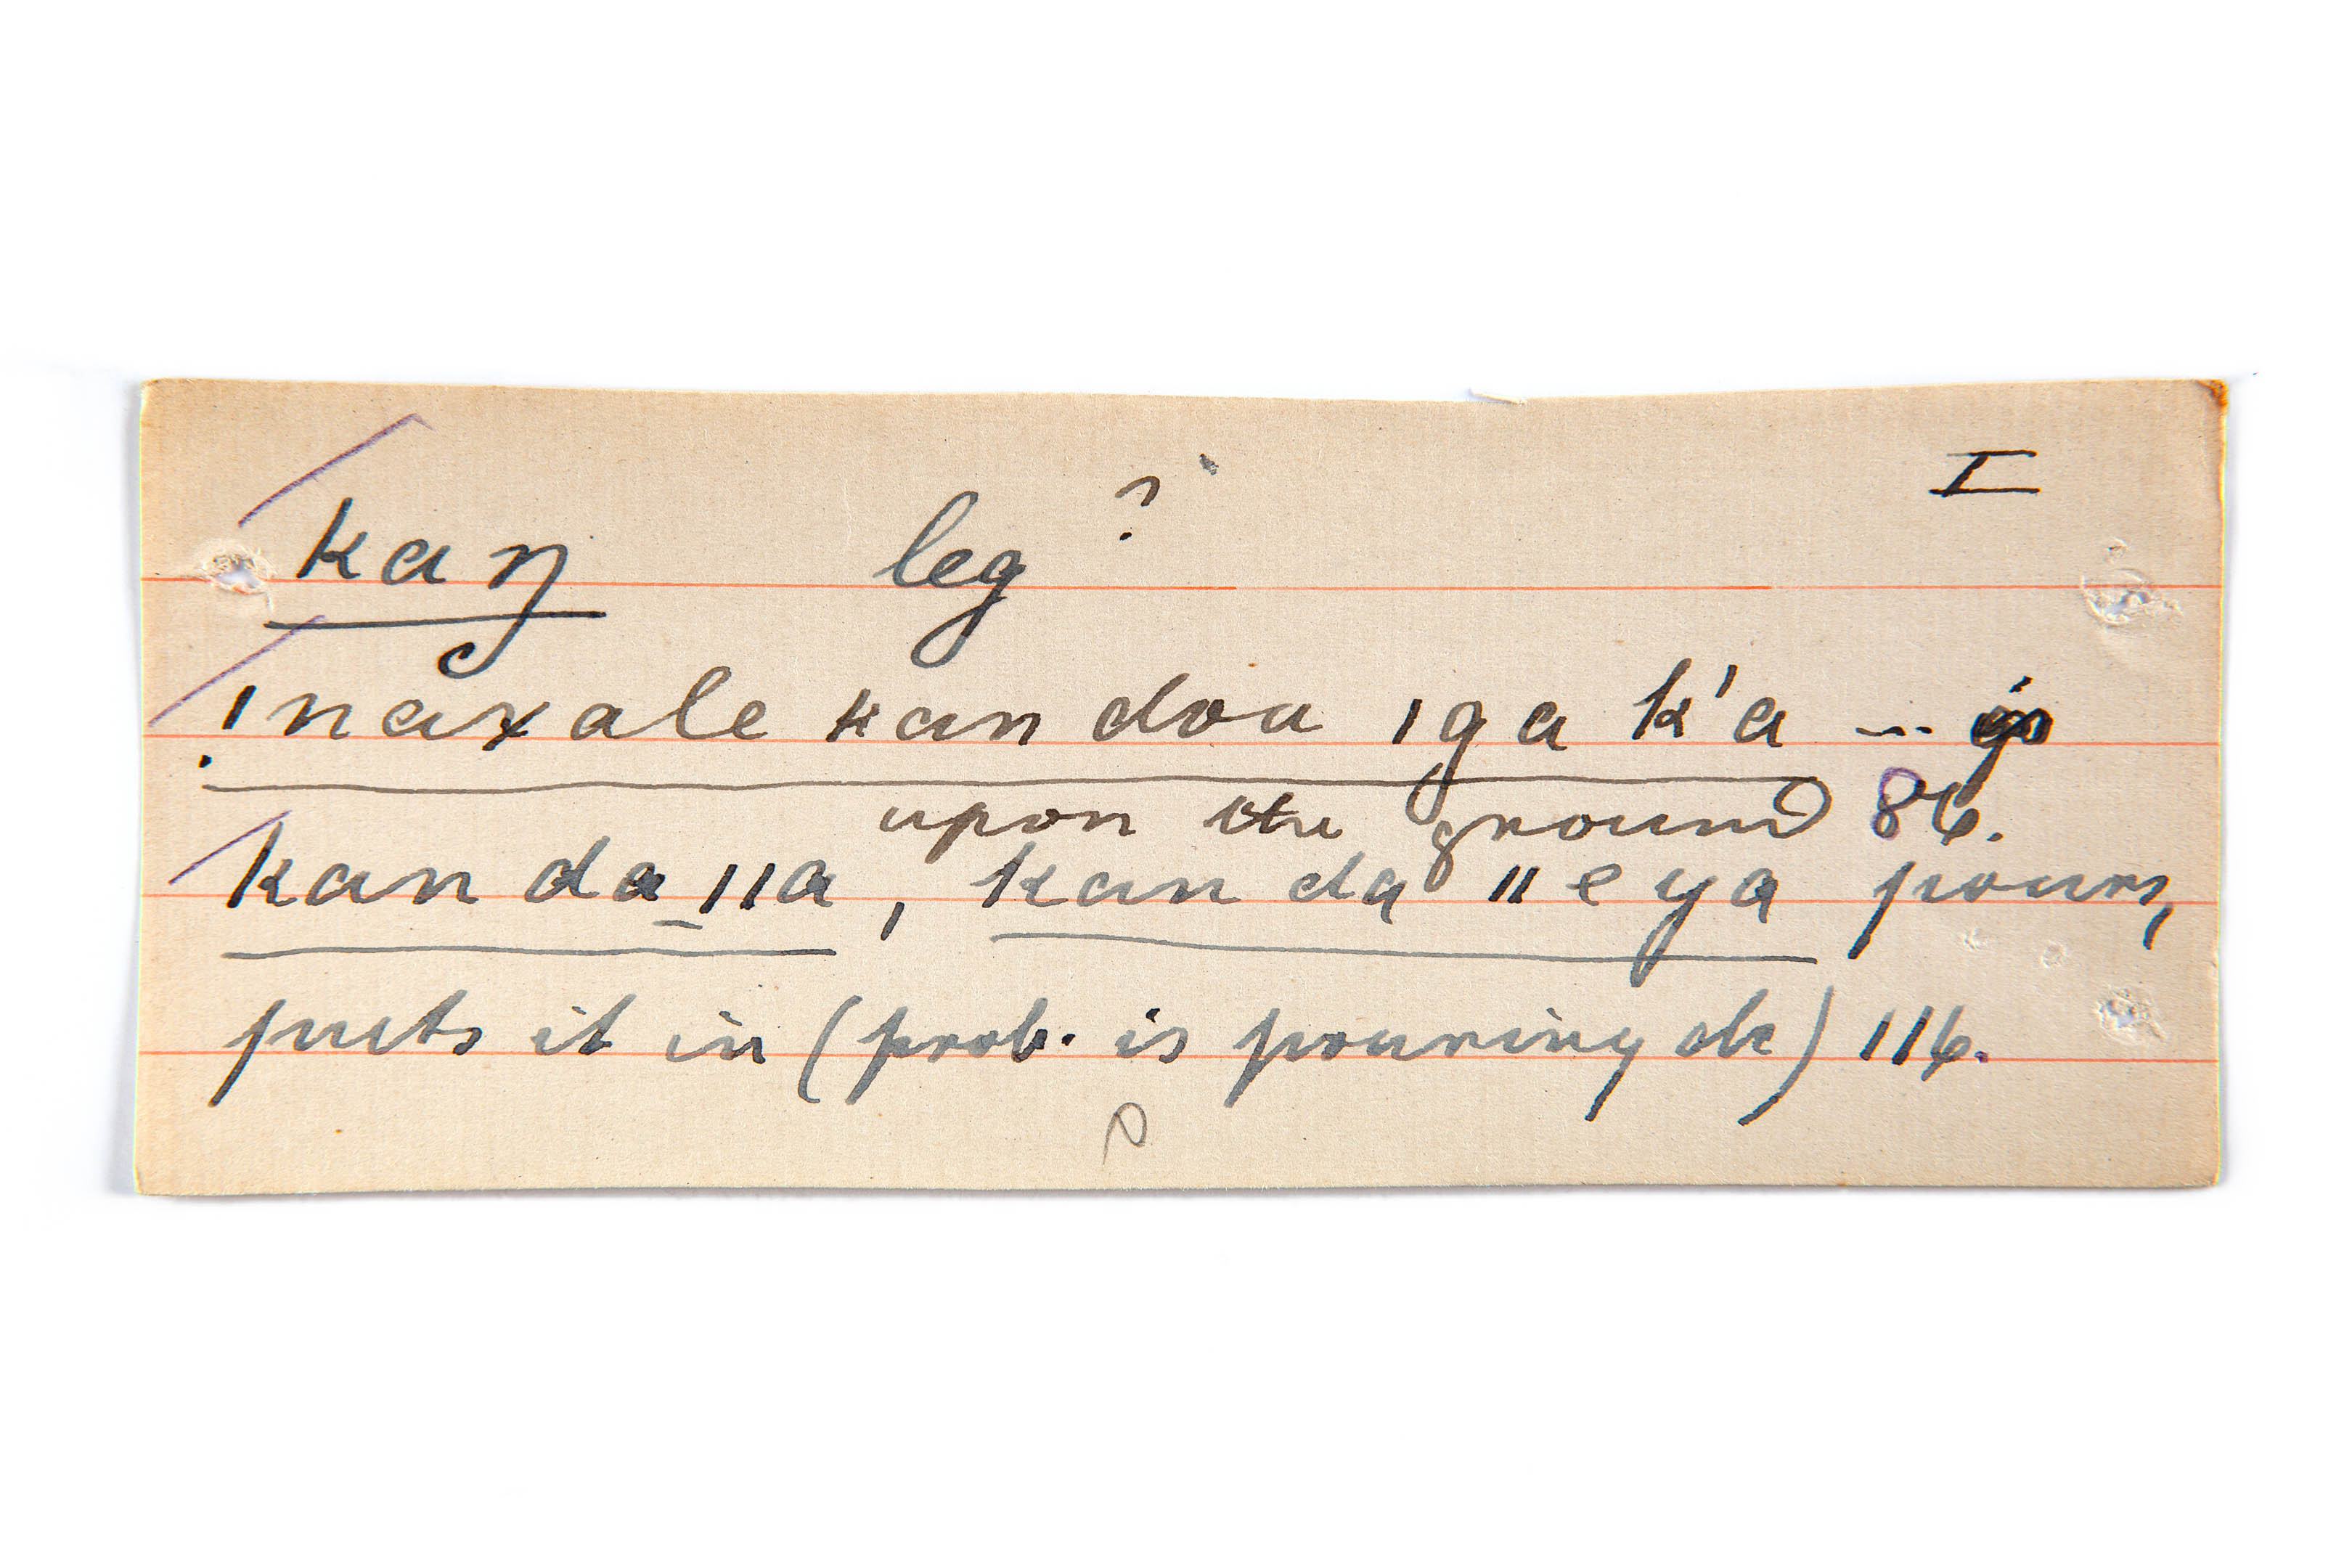 I
kaŋ leg?
!naxale kan doa ǀga k'a --- is
upon the ground 86.
kan da ǁa, kan da ǁeya pours,
puts it in (prob. is pouring etc) 116.